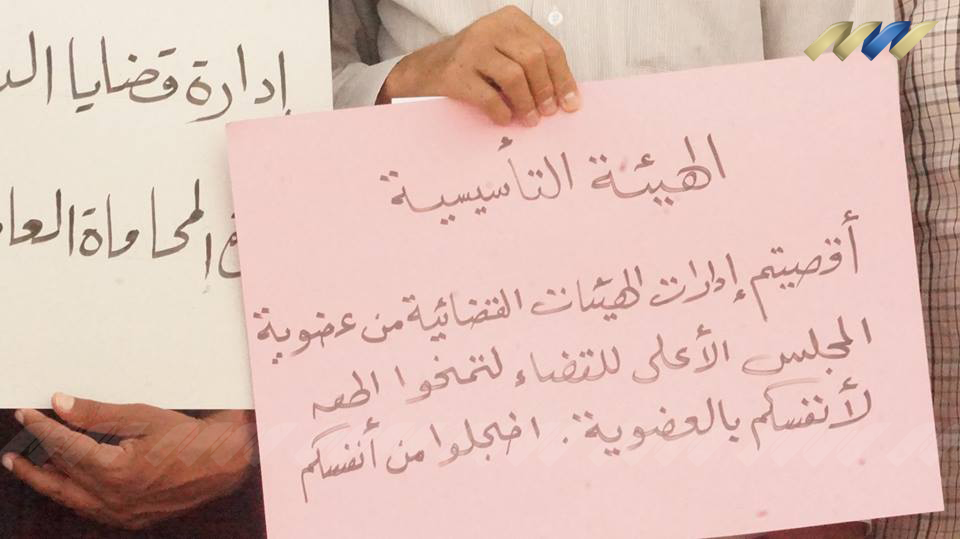 الهيئة التأسيسية
أقصيتم إدارات الهيئات القضائية من عضوية
المجلس الأعلى للقضاء لتمنحوا
لأنفسكم بالعضوية. اخجلوا من أنفسكم
إدارة قضايا
المحاماة